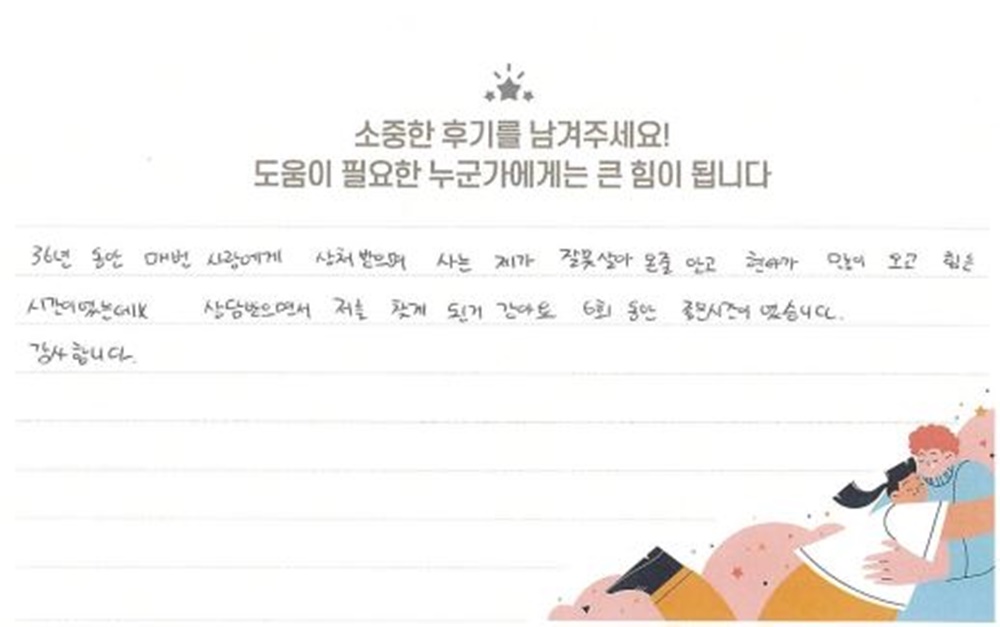 소중한 후기를 남겨주세요!
도움이 필요한 누군가에게는 큰 힘이 됩니다
36년 동안 매번 사람에게 상처받으며 사는 제가 잘못살아 온줄 알고 현타가 많이 오고 힘든
시간이었는데 상담받으면서 저를 찾게 된거 같아요 6회 동안 좋은시간이 였습니다.
감사합니다.